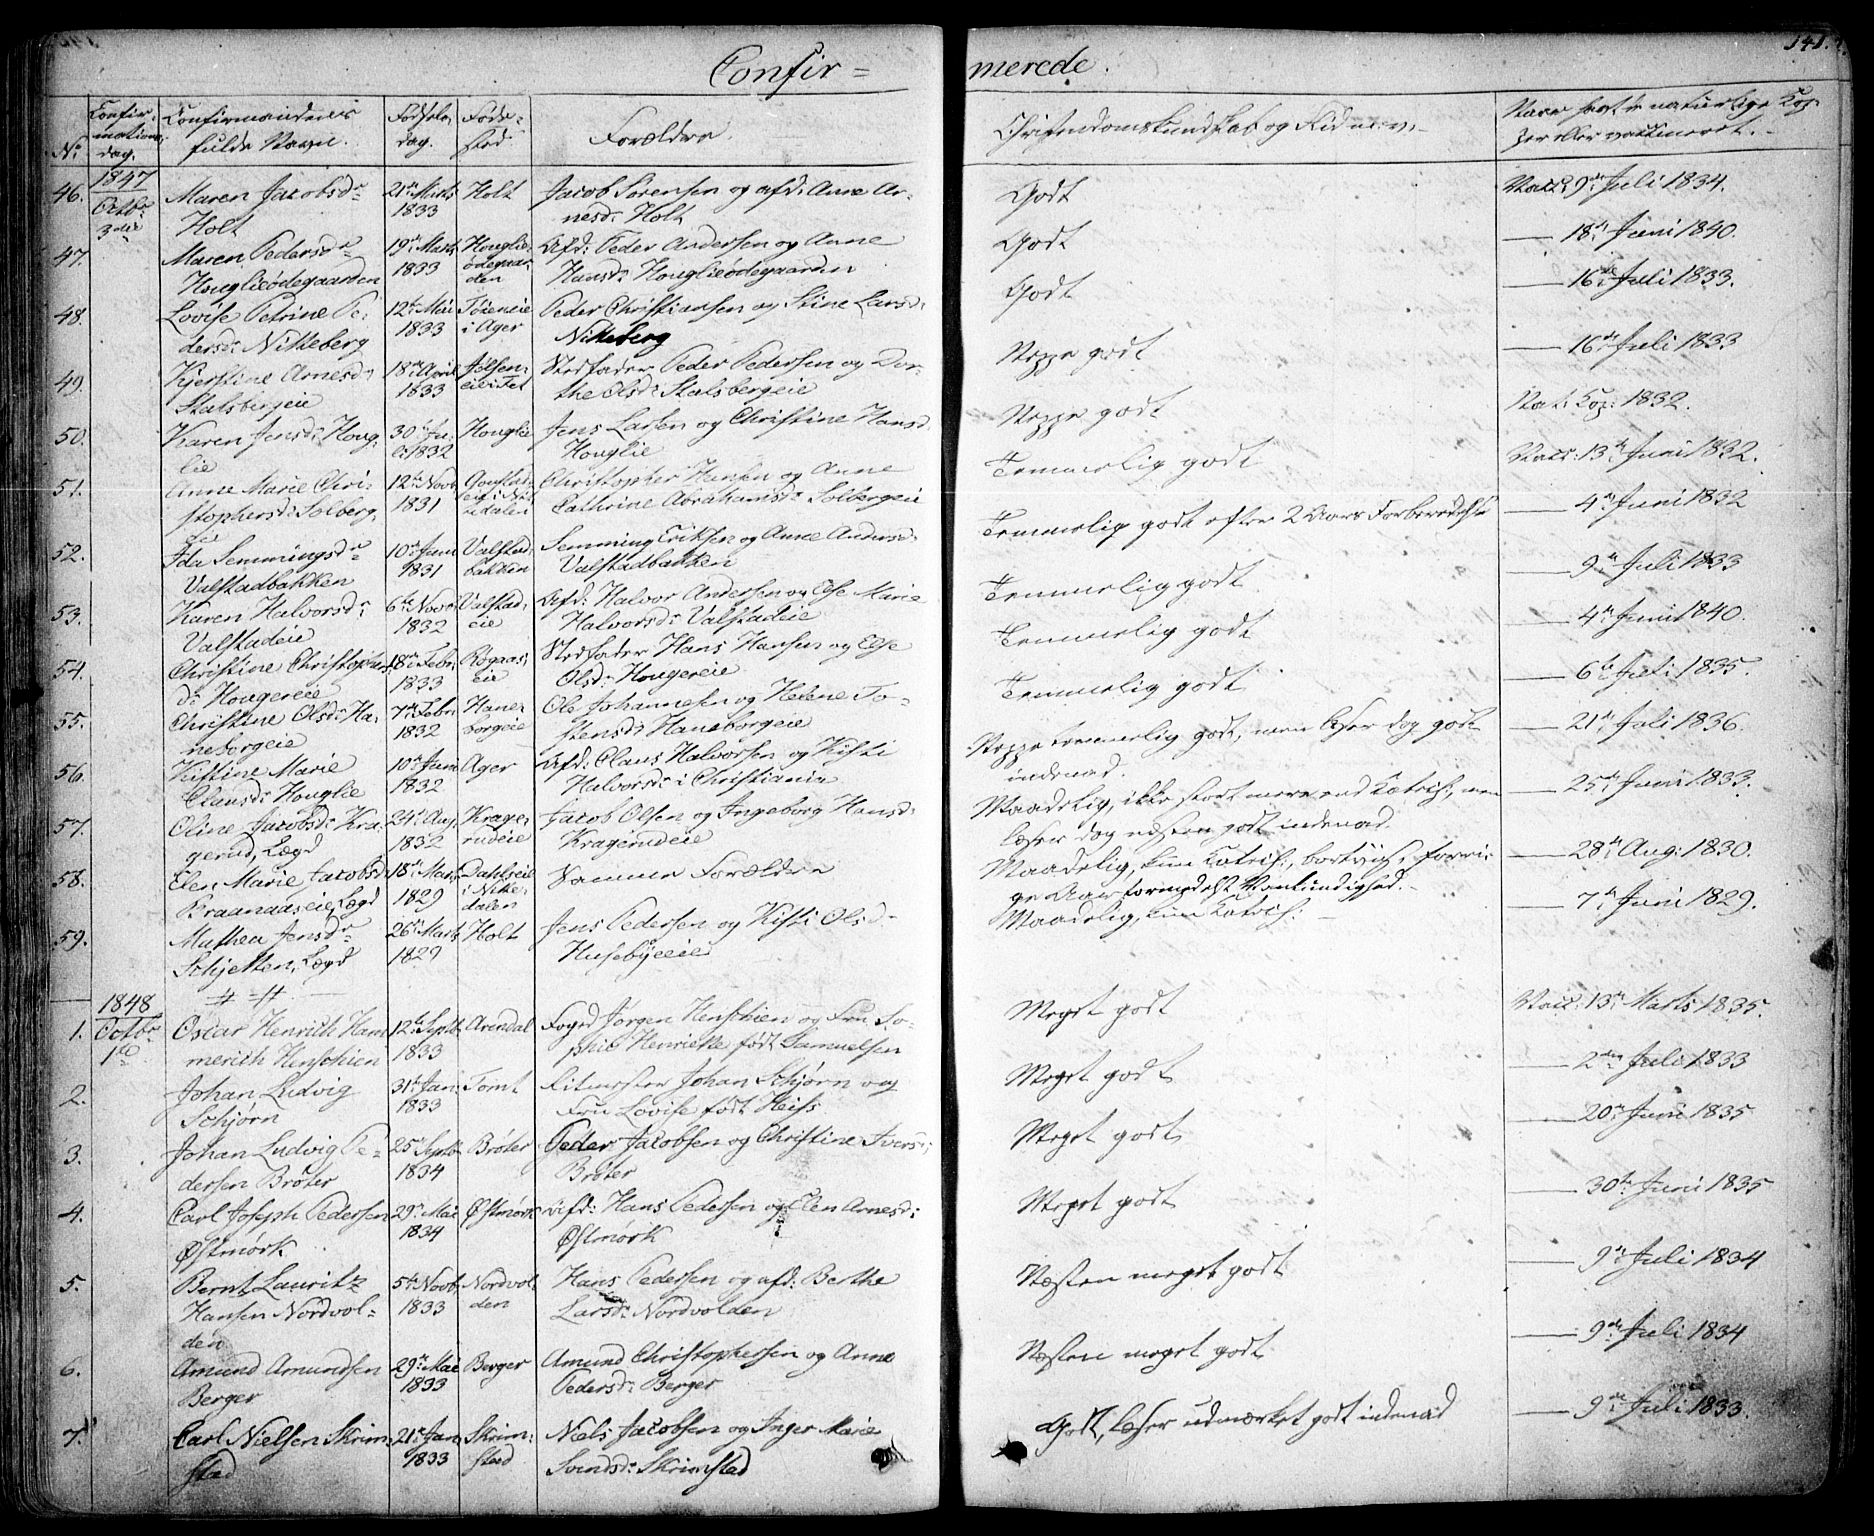 Confir =
merede.
141.
No
Confir-
mations
dag.
Confirmandernes
fulde Navne
Fødsels-
dag.
Føde-
sted
Forældre.
Christendomskundskab og Flid m:v:
Have havt de naturlige Kop-
per eller vaccineret.
46.
1847
Octbr
3die
Maren Jacobsdr
Holt
21de Marts
1833
Holt
Jacob Sørensen og afd: Anne Ar-
nesd: Holt
Godt
Vacc: 9de Juli 1834.
47.
Maren Pedersdr
Houglieødegaarden
19de Marts
1833
Houglie-
ødegaar-
den
Afd: Peder Andersen og Anne
Hansd: Houglieødegaarden
Godt
— 18de Juni 1840.
48.
Lovise Petrine Pe-
dersd: Nitteberg
12te Mai
1833
i Ager
Peder Christiansen og Stine Larsd:
Nitteberg
Godt
— 16de Juli 1833.
49.
Kjerstine Arnesd:
Stalsbergeie
18de April
1833
Stedfader Peder Pedersen og Dor-
the Olsd: Stalsbergeie
Neppe godt
— 16de Juli 1833
50.
Karen Jensd: Houg-
lie
30te Ju-
li 1832
Houglie
Jens Larsen og Christine Hansd:
Houglie
Neppe godt
Nat: Kop: 1832.
51.
Anne Marie Chri-
stophersd: Solberg-
eie
12te Novb
1831
Christopher Hansen og Anne
Cathrine Abrahamsd: Solbergeie
Temmelig godt
Vacc: 13de Juni 1832.
52.
Ida Semmingsdr
Valstadbakken
10de Juni
1831
Valstad-
bakken
Semming Eriksen og Anne Andersd:
Valstadbakken
Temmelig godt efter 2 Aars Forberedelse
— 4de Juni 1832
53.
Karen Halvorsd:
Valstadeie
6te Novb
1832
Valstad-
eie
Afd: Halvor Andersen og Else Marie
Halvorsd: Valstadeie
Temmelig godt
— 9de Juli 1833
54.
Christine Christophers-
d: Hougereie
18de Febr:
1833
Rogaas-
eie
Stedfader Hans Hansen og Else
Olsd: Hougereie
Temmelig godt
— 4de Juni 1840.
55.
Christine Olsd: Ha-
neborgeie
7de Febr:
1832
Hane-
borgeie
Ole Johannesen og Helene To-
stensd: Haneborgeie
Temmelig godt
— 6te Juli 1835.
56.
Kistine Marie
Clausd: Houglie
10de Juni
1832
Ager
Afd: Claus Halvorsen og Kisti
Halvorsd: i Christiania
Neppe temmelig godt, men læser dog godt
indenad.
— 21de Juli 1836.
57.
Oline Jacobsd: Kra-
gerud, Lægd
24de Aug:
1832
Krage-
rudeie
Jacob Olsen og Ingeborg Hansd:
Kragerudeie
Maadelig, ikke stort mere end Katech:, men
læser dog næsten godt indenad.
— 25de Juni 1833.
58.
Elen Marie Jacobsd:
Braanaaseie, Lægd
18de Mai
1829
Dahlseie
i Nitte-
dalen
Samme Forældre
Maadelig, kun Katech:, bortviist forri-
ge Aar formedelst Vankundighed.
— 28de Aug: 1830.
59.
Mathea Jensdr
Schjetten, Lægd
26de Marts
1829
Holt
Jens Pedersen og Kisti Olsd:
Husebyeeie
Maadelig, kun Katech:
— 7de Juni 1829.
1.
1848
Octbr
1ste
Oscar Henrich Ham-
merich Henschien
12te Septb
1833
Arendal
Foged Jørgen Henschien og Fru So-
phie Henriette født Samuelsen
Meget godt
Vacc: 13de Marts 1835.
2.
Johan Ludvig
Schjørn
31te Jan:
1833
Tomt
Ritmester Johan Schjørn og
Fru Lovise født Heiss
Meget godt
— 2den Juli 1833
3.
Johan Ludvig Pe-
dersen Brøter
25de Septb
1834
Brøter
Peder Jacobsen og Christine Iversd:
Brøter
Meget godt
— 20de Juni 1835
4.
Carl Joseph Pedersen
Østmørk
29de Mai
1834
Østmørk
Afd: Hans Pedersen og Elen Arnesd:
Østmørk
Meget godt
— 30te Juni 1835
5.
Bernt Lauritz
Hansen Nordvol-
den
5te Novb
1833
Nordvol-
den
Hans Pedersen og afd: Berthe
Larsd: Nordvolden
Næsten meget godt
— 9de Juli 1834
6.
Amund Amundsen
Berger
29de Mai
1833
Berger
Amund Christophersen og Anne
Pedersd: Berger
Næsten meget godt
— 9de Juli 1834
7.
Carl Nielsen Skrim-
stad
21de Jan:
1833
Skrim-
stad
Niels Jacobsen og Inger Marie
Svendsd: Skrimstad
Godt, læser udmærket godt indenad
— 9de Juli 1833.